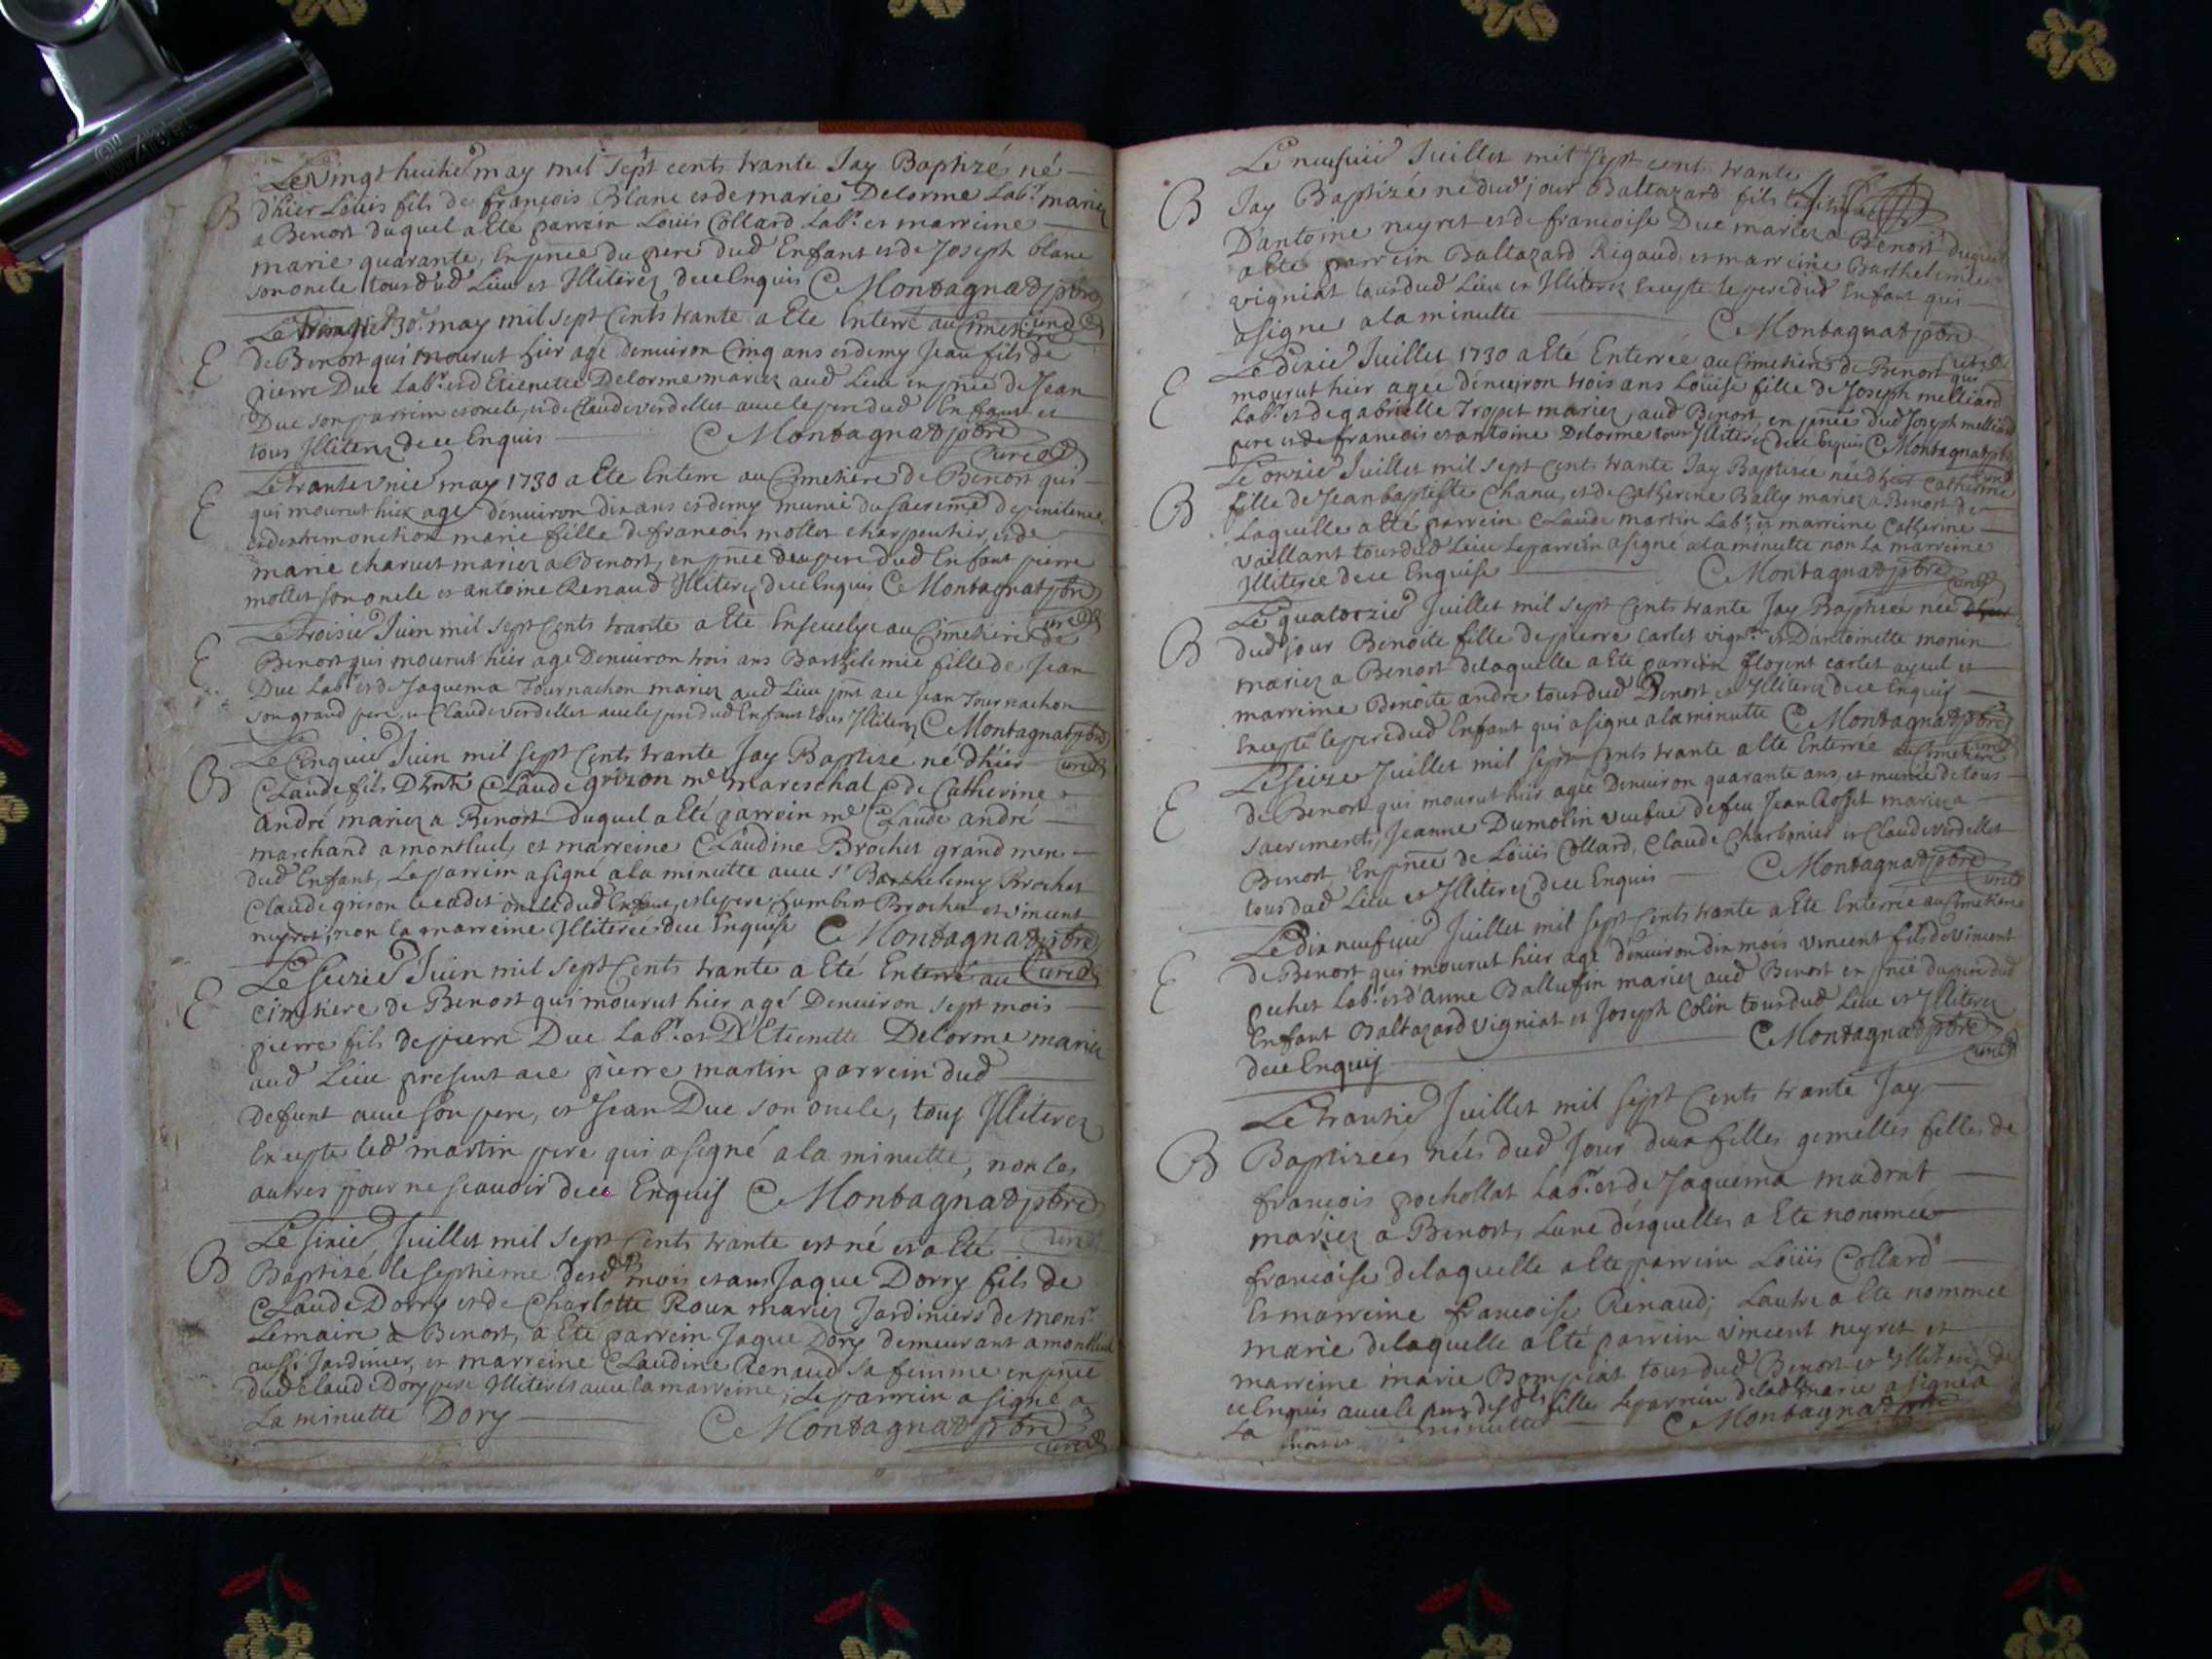 Le vingt huitie may mil sept cents trante Jay Baptizé né
B
d'hier Loüis fils de françois Blanc et de marie Delorme Labr. mariez
a Benost duquel a Eté parrein Loüis Collard Labr. et marreine
marie quarante, En pnce du pere dud Enfant et de Joseph blanc
son oncle tous dud Lieu et Illiterez de ce Enquis C Montagnat ptre
curé
Le 30e may mil sept Cents trante a Eté Enterré au Cimet.
E
de Benost qui mourut hier age denuiron Cinq ans et demy Jean fils de
pierre Duc Labr. et d'Etienette Delorme mariez aud Lieu en pnce de Jean
Duc son parrein et oncle, et de Claude verdellet auec le pere dud Enfant et
tous Illiterez de ce Enquis C Montagnat ptre
curé
Le trante vnie may 1730 a Ete Enterre au Cimetiere de Benost qui
E
qui mourut hier age d'enuiron dix ans et demy munie du sacremt de penitence
et dextremonction marie fille de francois mollet charpentier, et de
marie charuet mariez a Benost, en pnce du pere dud Enfant pierre
mollet son oncle et antoine Renaud Illiterez de ce Enquis C Montagnat ptre
curé
Le troisie Juin mil sept Cents trante a Eté Enseuelye au Cimetiere de
E
Benost qui mourut hier age Denuiron trois ans Barthelemie fille de Jean
Duc Labr et de Jaquema Tournachon mariez aud Lieu pnt a ce Jean Tournachon
son grand pere, et Claude verdellet auec le pere dud Enfant tous Illiterez C Montagnat ptre
curé
Le Cinquie Juin mil sept Cents trante Jay Baptizé né d'hier
B
Claude fils D Claude grizon me mareschal et de Catherine
andré mariez a Benost duquel a Eté parrein me Claude andré
marchand a montluel, et marreine Claudine Brochet grand mere
dud Enfant, Le parrein a signé a la minutte auec Sr Barthelemy Brochet
Claude grison oncle dud Enfant, et le pere, humbert Brochet et vincent
neyret, non la marreine Illiterée de ce Enquise C Montagnat ptre
curé
Le seizie Juin mil sept Cents trante a Eté Enterré au
E
Cimetiere de Benost qui mourut hier agé Denuiron sept mois
pierre fils de pierre Duc Labr. et D'Etienette Delorme mariez
aud Lieu present a ce pierre martin parrein dud
defunt auec son pere, et Jean Duc son oncle, tous Illiterez
Excepte led martin pere qui a signé a la minutte, non les
autres pour ne scauoir de ce Enquis C Montagnat ptre
curé
Le sixie Juillet mil sept Cents trante est né et a Eté
B
Baptizé le septieme desd mois et an Jaque Dorry fils de
Claude Dorry et de Charlotte Roux mariez Jardiniers de monsr.
Lemaire a Benost, a Eté parrein Jaque Dory demeurant a montluel
aussi Jardinier, et marreine Claudine Renaud sa femme en pnce
dud Claude Dory pere Illiterés auec la marreine, Le parrein a signé a
La minutte Dory C Montagnat ptre
curé
Le neufuie Juillet mil sept cents trante
B
Jay Baptizé né dud jour Baltazard fils legitime
D'antoine neyret et de francoise Duc mariez a Benost duquel
a Eté parrein Baltazard Rigaud, et marreine Barthelemie
vigniat tous dud Lieu et Illiterez Excepte le pere dud Enfant qui
a signe a la minutte C Montagnat ptre
curé
Le Dixie Juillet 1730 a Eté Enterrée au Cimetiere de Benost qui
E
mourut hier agée d'enuiron trois ans Loüise fille de Joseph melliard
Labr. et de gabrielle Tropet mariez, aud Benost en pnce dud Joseph melliard
pere et de francois et antoine Delorme tous Illiterez de ce Enquis C Montagnat ptre
curé
Le onzie Juillet mil sept Cents trante Jay Baptizée née d'hier Catherine
B
fille de Jean baptiste Chanu, et de Catherine Bally mariez a Benost de
Laquelle a Eté parrein Claude martin Labr. et marreine Catherine
vaillant tous dud Lieu Le parrein a signé a la minutte non La marreine
Illiterée de ce Enquise C Montagnat ptre
curé
Le quatorzie Juillet mil sept Cents trante Jay Baptizée née
B
dud jour Benoite fille de pierre Carlet vignr. et D'antoinette monin
mariez a Benost delaquelle a Eté parrein florent carlet ayeul et
marreine Benoite andré tous dud Benost et Illiterez de ce Enquis
Excepté le pere dud Enfant qui a signe a la minutte C Montagnat ptre
curé
Le seize Juillet mil sept Cents trante a Eté Enterrée au Cimetiere
E
de Benost qui mourut hier agée Denuiron quarante ans, et munie de tous
sacrements, Jeanne Dumolin veufue de feu Jean Rosset mariez a
Benost En pnce de Loüis Collard, Claude Charbonier et Claude verdellet
tous dud Lieu et Illiterez de ce Enquis C Montagnat ptre
curé
Le dix neufuie Juillet mil sept Cents trante a Eté Enterrée au Cimetiere
E
de Benost qui mourut hier agé d'enuiron dix mois vincent fils de vincent
pechet Labr. et d'anne Ballufin mariez aud Benost en pnce du pere dud
Enfant Baltazard vigniat et Joseph Colin tous dud Lieu et Illiterez
de ce Enquis C Montagnat ptre
curé
Le trantie Juillet mil sept Cents trante Jay
B
Baptizées nées dud Jour deux filles gemelles filles de
françois pochollat Labr. et de Jaquema madrat
mariez a Benost, Lune désquelles a Ete nommée
francoise delaquelle a Eté parrein Loüis Collard
Et marreine francoise Renaud; Lautre a Ete nommée
marie delaquelle a Eté parrein vincent neyret et
marreine marie Bompiat tous dud Benost et Illiterez de
ce Enquis auec le pere desdtes filles Le parrein delad marie a signé a
La minutte C Montagnat ptre